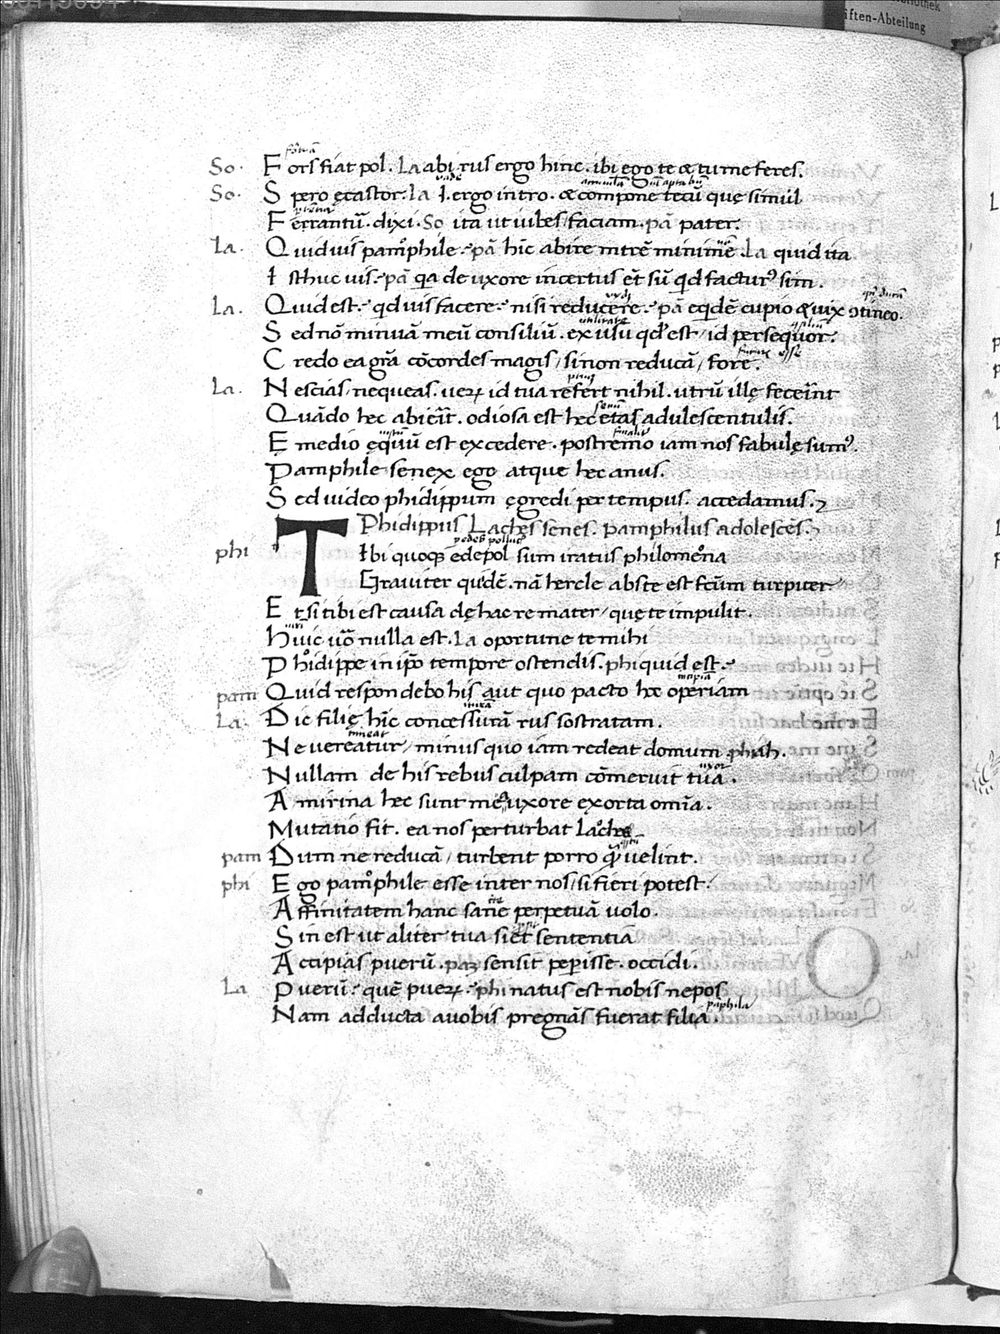 So· Fors fiat pol. La abi rus ergo hinc. ibi ego te & tu me feres.
So· Spero ęcastor. La I. ergo intro. & compone tecū quę simul
Ferrantū. dixi. So ita ut iubes / faciam. pā pater.
La. Quid uis pamphile. pā hīc abire mrēm minime. La quid ita
Isthuc uis. pā q̄a de uxore incertus ēt sū qd factur⁹ sim.
La. Quid est. qd uis facere. nisi reducere. pā eqdē cupio & uix ɔtineo.
Sed nō minuā meū consiliū. ex usu qd' est / id persequor.
Credo ea grā cōcordes magis / si non reducā / fore.
La. Nescias / nequeas. uerꝝ id tua refert nihil. utrū illę fecerīnt
Quādo hec abierīt. odiosa est hec etas adulescentulis.
E medio equū est excedere. postremo iam nos fabulę sum⁹.
Pamphile senex ego atque hec anus.
Sed uideo phidippum egredi per tempus. accedamus.
Phidippus Laches senes. Pamphilus adolescēs.
phi TIbi quoqꝫ edepol sum iratus philomena
Grauiter quidē. nā hercle abste est fctum turpiter
Etsi tibi est causa dę hac re mater / quę te impulit.
Huic uō nulla est. La oportune te mihi
Phidippe in ipo tempore ostendis. phi quid est.
pam Quid respondebo his aut quo pacto hoc operiam
La. Dic filię hīc concessurā rus sostratam.
Ne uereatur / minus quo iam redeat domum. phi ah.
Nullam de his rebus culpam cōmeruit tua.
A mirina hec sunt mea uxore exorta omīa.
Mutatio fit. ea nos perturbat Laches
pam Dum ne reducā / turbent porro q̄ uelint.
phi Ego pamphile esse inter nos / si fieri potest
Affinitatem hanc sane perpetuā uolo.
Sin est ut aliter tua siet sententia
Accipias puerū. pam sensit peperisse. occidi.
La Puerū. quē puerꝝ. phi natus est nobis nepos
Nam adducta auobis pregnās fuerat filia